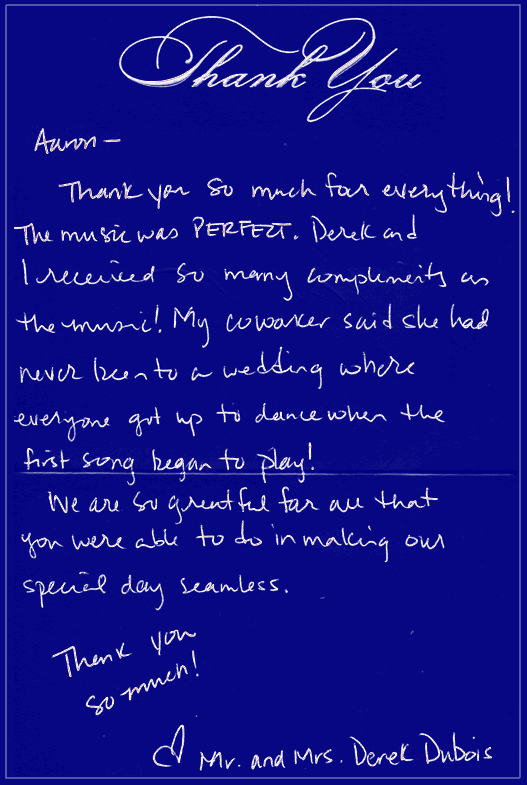 Thank You
Aaron—
Thank you so much for everything!
The music was PERFECT. Derek and
I received so many compliments on
the music! My coworker said she had
never been to a wedding where
everyone got up to dance when the
first song began to play!
We are so greatful for all that
you were able to do in making our
special day seamless.
Thank you
so much!
♡ Mr. and Mrs. Derek Dubois